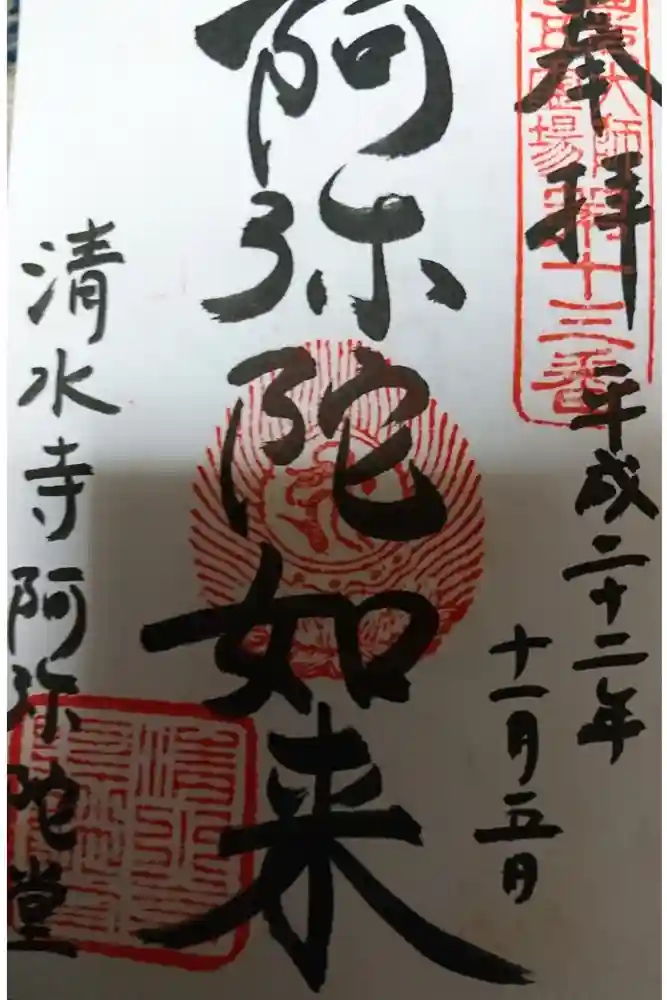 奉拝
大師
霊場第十三番
平成二十二年
十一月五日
阿弥陀如来
清水寺阿弥陀堂